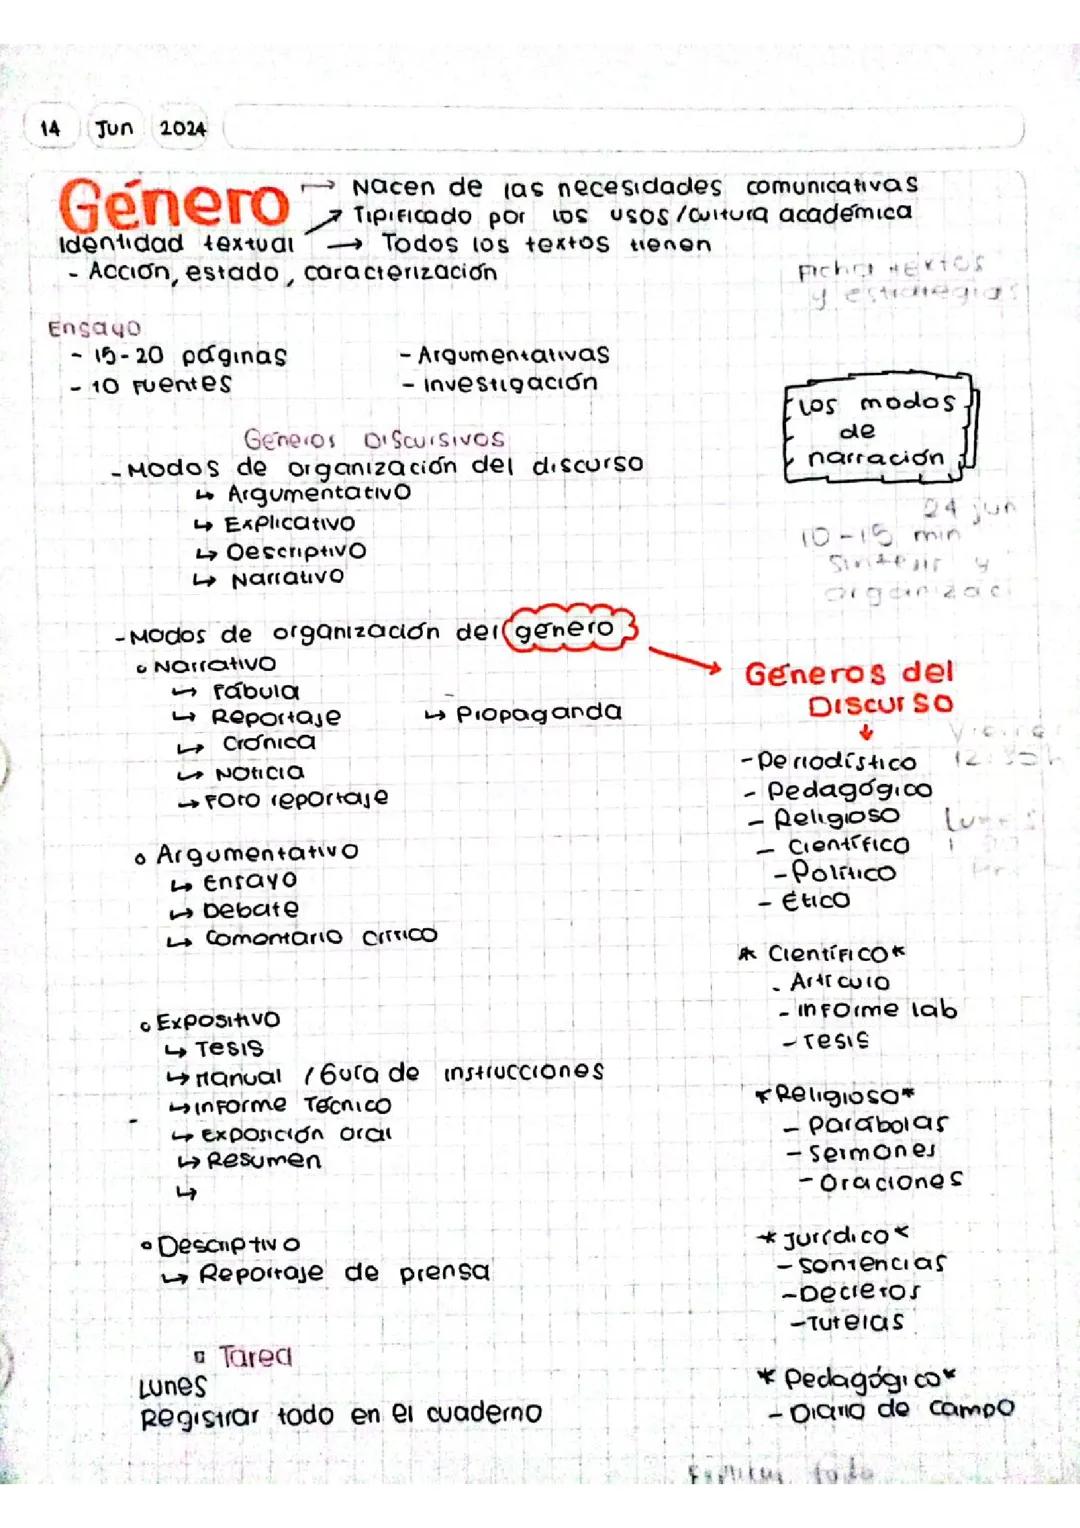 14 Jun 2024
Género → Nacen de las necesidades comunicativas
↗ Tipificado por los usos/cultura académica
Identidad textual → Todos los textos tienen
- Acción, estado, caracterización
Ficha textos
y estrategias
Ensayo
- 15-20 páginas
- 10 Fuentes
- Argumentativas
- Investigación
Los modos
de
narración
Géneros Discursivos
- Modos de organización del discurso
↳ Argumentativo
↳ Explicativo
↳ Descriptivo
↳ Narrativo
24 jun
10-15 min
Síntesis y
organizaci
- Modos de organización del género
• Narrativo
↳ Fábula
↳ Reportaje
↳ Crónica
↳ Noticia
→ Foto reportaje
↳ Propaganda
• Argumentativo
↳ Ensayo
↳ Debate
↳ Comentario crítico
• Expositivo
↳ Tesis
↳ Manual / Guía de instrucciones
↳ Informe Técnico
↳ Exposición oral
↳ Resumen
↳
• Descriptivo
↳ Reportaje de prensa
Tarea
Lunes
Registrar todo en el cuaderno
Géneros del
Discurso
↓
- Periodístico
- Pedagógico
- Religioso
- Científico
- Político
- Ético
* Científico*
- Artículo
- Informe lab
- Tesis
* Religioso*
- Parábolas
- Sermones
- Oraciones
* Jurídico*
- Sentencias
- Decretos
- Tutelas
* Pedagógico*
- Diario de campo